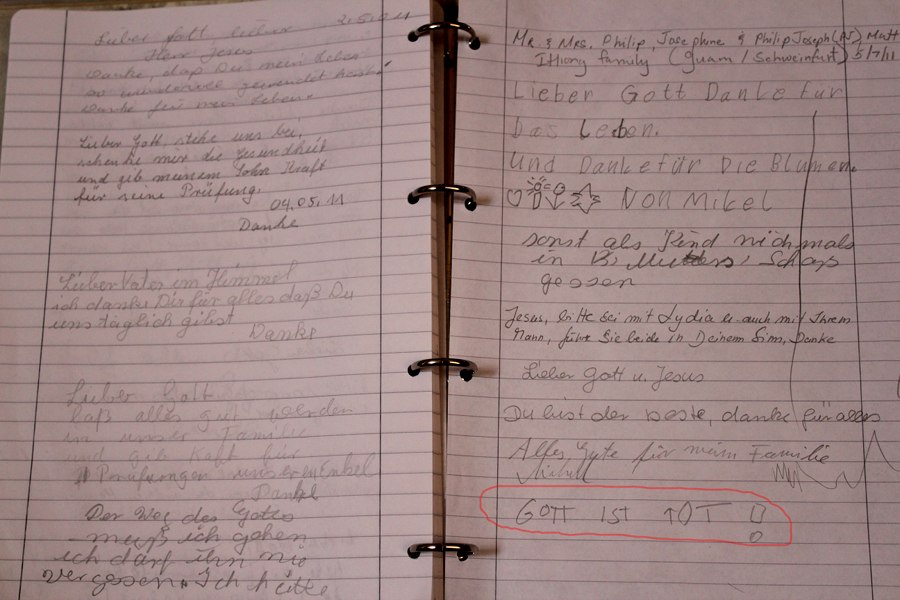 2.5.2011
Lieber Gott, lieber
Herr Jesus
Danke, daß Du mein Leben
so wundervoll gewendet hast!
Danke für mein Leben.
Lieber Gott, stehe uns bei,
schenke mir die Gesundheit
und gib meinem Sohn Kraft
für seine Prüfung.
04.05.11
Danke
Lieber Vater im Himmel
ich danke Dir für alles daß Du
uns täglich gibst
Danke
Lieber Gott
laß alles gut werden
in unser Familie
und gib Kraft für
Prüfungen unseren Enkel
Danke
Der Weg des Gottes
muß ich gehen
ich darf ihn nie
vergessen. Ich hätte
Mr. & Mrs. Philip, Josephine & Philip Joseph (PJ) Matt
family (Guam / Schweinfurt) 5/7/11
Lieber Gott Danke für
Das Leben.
Und Danke für Die Blumen.
Von Mikel
sonst als Kind nichmals
in Mutters Schoß
gesson
Jesus, bitte sei mit Lydia u. auch mit Ihrem
Mann, führe Sie beide in Deinem Sinn, Danke
Lieber Gott u. Jesus
Du bist der beste, danke für alles
Alles Gute für mein Familie
GOTT IST TOT